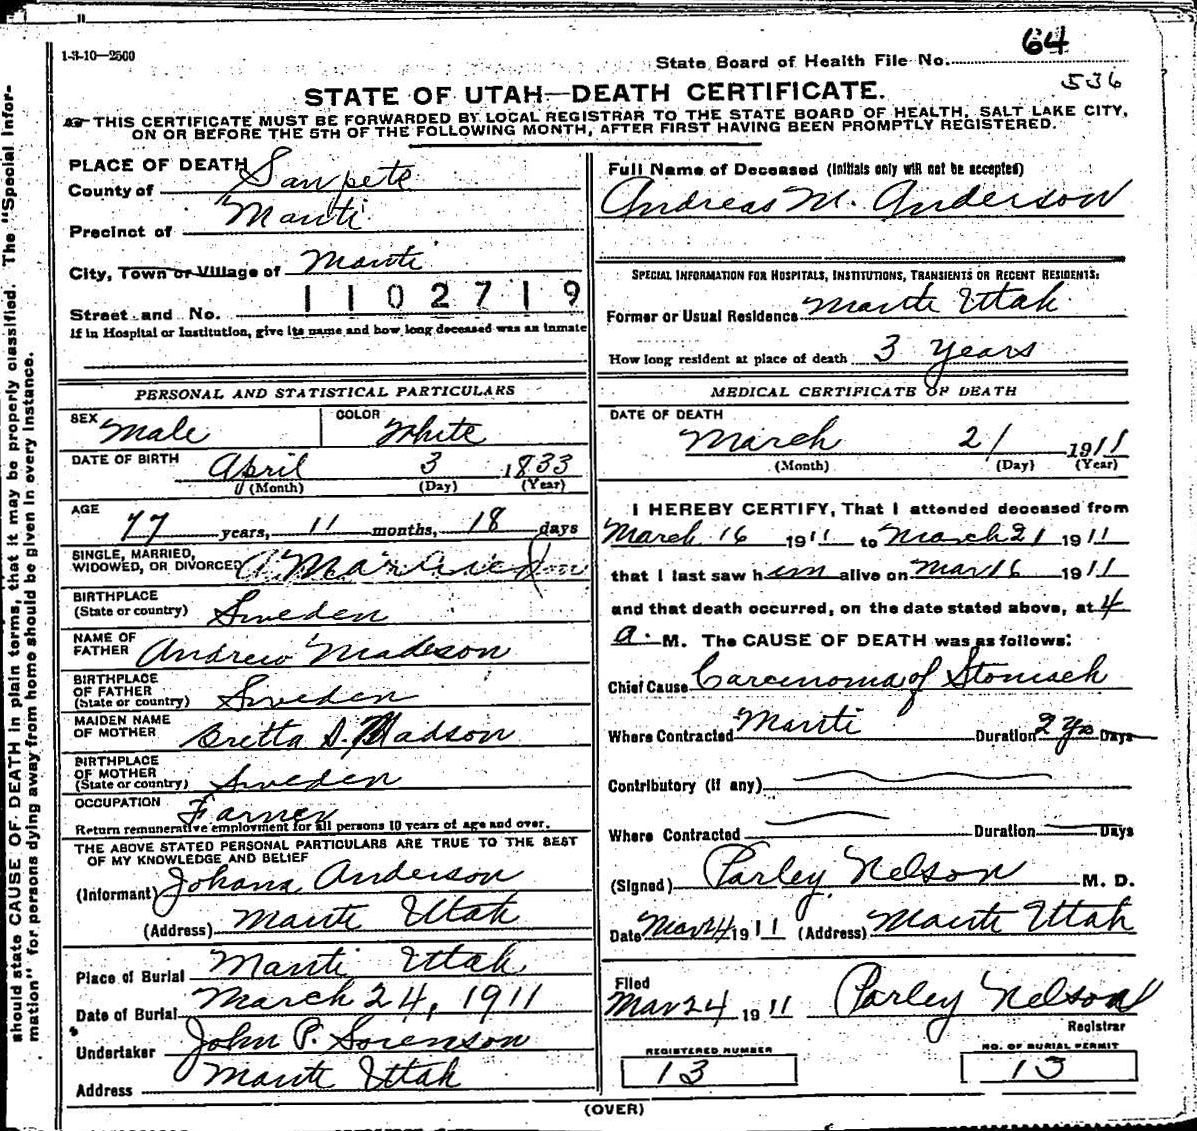 1-3-10—2500
64
State Board of Health File No.
536
STATE OF UTAH—DEATH CERTIFICATE.
THIS CERTIFICATE MUST BE FORWARDED BY LOCAL REGISTRAR TO THE STATE BOARD OF HEALTH, SALT LAKE CITY,
ON OR BEFORE THE 5TH OF THE FOLLOWING MONTH, AFTER FIRST HAVING BEEN PROMPTLY REGISTERED.
should state CAUSE OF DEATH in plain terms, that it may be properly classified. The "Special Infor-
mation" for persons dying away from home should be given in every instance.
PLACE OF DEATH
County of Sanpete
Precinct of Manti
City, Town or Village of Manti
Street and No. 1102719
If in Hospital or Institution, give its name and how long deceased was an inmate
PERSONAL AND STATISTICAL PARTICULARS
SEX Male COLOR White
DATE OF BIRTH April 3 1833
(Month) (Day) (Year)
AGE 77 years, 11 months, 18 days
SINGLE, MARRIED,
WIDOWED, OR DIVORCED Married
BIRTHPLACE
(State or country) Sweden
NAME OF
FATHER Andrew Madson
BIRTHPLACE
OF FATHER
(State or country) Sweden
MAIDEN NAME
OF MOTHER Britta S. Madson
BIRTHPLACE
OF MOTHER
(State or country) Sweden
OCCUPATION Farmer
Return remunerative employment for all persons 10 years of age and over.
THE ABOVE STATED PERSONAL PARTICULARS ARE TRUE TO THE BEST
OF MY KNOWLEDGE AND BELIEF
(Informant) Johana Anderson
(Address) Manti Utah
Place of Burial Manti Utah
Date of Burial March 24, 1911
Undertaker John P. Sorenson
Address Manti Utah
Full Name of Deceased (Initials only will not be accepted)
Andreas M. Anderson
SPECIAL INFORMATION FOR HOSPITALS, INSTITUTIONS, TRANSIENTS OR RECENT RESIDENTS:
Former or Usual Residence Manti Utah
How long resident at place of death 3 years
MEDICAL CERTIFICATE OF DEATH
DATE OF DEATH
March 21 1911
(Month) (Day) (Year)
I HEREBY CERTIFY, That I attended deceased from
March 16 1911 to March 21 1911
that I last saw him alive on Mar 16 1911
and that death occurred, on the date stated above, at 4
a. M. The CAUSE OF DEATH was as follows:
Chief Cause Carcinoma of Stomach
Where Contracted Manti Duration 2 yrs Days
Contributory (if any)
Where Contracted Duration Days
(Signed) Parley Nelson M. D.
Date Mar 24 1911 (Address) Manti Utah
Filed
Mar 24 1911 Parley Nelson
Registrar
REGISTERED NUMBER
13
NO. OF BURIAL PERMIT
13
(OVER)